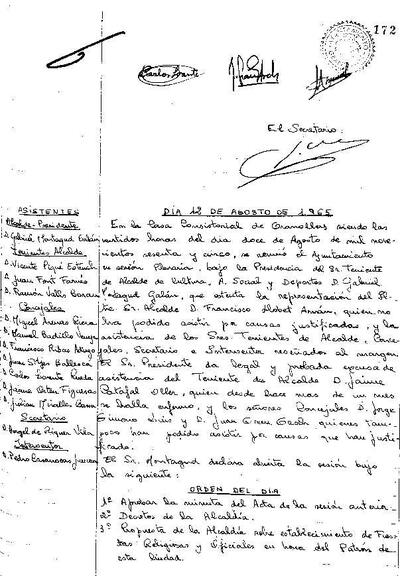 172
Carlos Boarte
El Secretario:
ASISTENTES
DÍA 12 DE AGOSTO DE 1.965
Alcalde-Presidente
D. Gabriel Montagud Galán
Tenientes Alcalde
D. Vicente Piqué
D. Juan Font Farrés
D. Ramón Valls
Concejales
D. Miguel Arenas
D. Manuel Badillo
D. Francisco Ribas
D. Jaime
D. Carlos
D. Jaime Figueras
D. Julián Miralles
Secretario
D. Angel de Riquer Vila
Interventor
D. Pedro Casanovas
En la Casa Consistorial de Granollers siendo las
veintidos horas del día doce de Agosto de mil nove-
cientos sesenta y cinco, se reunió el Ayuntamiento
en sesión Plenaria, bajo la Presidencia del Sr. Teniente
de Alcalde de Cultura, A. Social y Deportes D. Gabriel
Montagud Galán, que ostenta la representación del Il-
tre Sr. Alcalde D. Francisco Llobet Arnán, quien no
ha podido asistir por causas justificadas, y la
asistencia de los Sres. Tenientes de Alcalde, Conce-
jales, Secretario e Interventor reseñados al margen.
El Sr. Presidente da legal y probada excusa de
asistencia del Teniente de Alcalde D. Jaime
Oller, quien desde hace más de un mes
se halla enfermo, y los señores Concejales D. Jorge
y D. Juan quienes tam-
poco han podido asistir por causas que han justi-
ficado.
El Sr. Montagud declara abierta la sesión bajo
la siguiente:
ORDEN DEL DIA
1º Aprobar la minuta del Acta de la sesión anterior.
2º Decretos de la Alcaldía.
3º Propuesta de la Alcaldía sobre establecimiento de Fies-
tas Religiosas y Oficiales en honor del Patrón de
esta Ciudad.